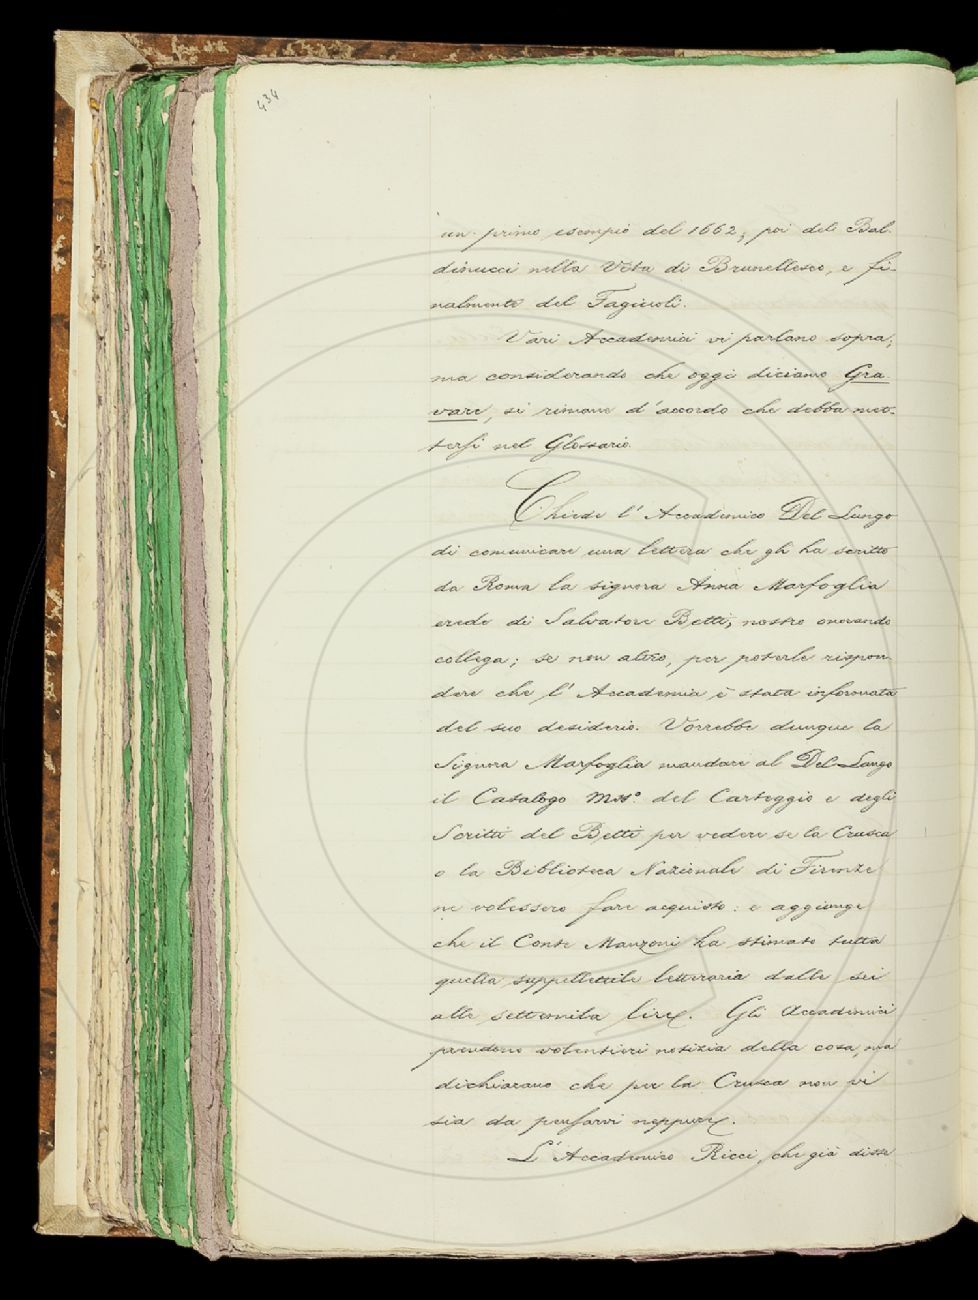 434
un primo esempio del 1662, poi del Bal-
dinucci nella Vita di Brunellesco, e fi-
nalmente del Fagiuoli.
Vari Accademici vi parlano sopra;
ma considerando che oggi diciamo Gra-
vare, si rimane d'accordo che debba met-
tersi nel Glossario.
Chiede l'Accademico Del Lungo
di comunicare una lettera che gli ha scritto
da Roma la signora Anna Marfoglia
erede di Salvatore Betti, nostro onorando
collega; se non altro, per poterle rispon-
dere che l'Accademia è stata informata
del suo desiderio. Vorrebbe dunque la
Signora Marfoglia mandare al Del Lungo
il Catalogo mss.º del Carteggio e degli
Scritti del Betti per vedere se la Crusca
o la Biblioteca Nazionale di Firenze
ne volessero fare acquisto: e aggiunge
che il Conte Manzoni ha stimato tutta
quella suppellettile letteraria dalle sei
alle settemila lire. Gli Accademici
prendono volentieri notizia della cosa, ma
dichiarano che per la Crusca non vi
sia da pensarvi neppure.
L'Accademico Ricci, che già disse